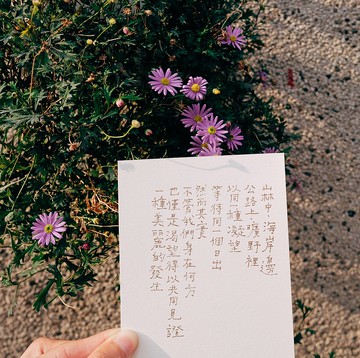 山林中，海岸邊
公路上，曠野裡
以同一種凝望
等待同一個日出
然而其實
不管我們身在何方
也僅是渴望得以共同見證
一種美麗的發生